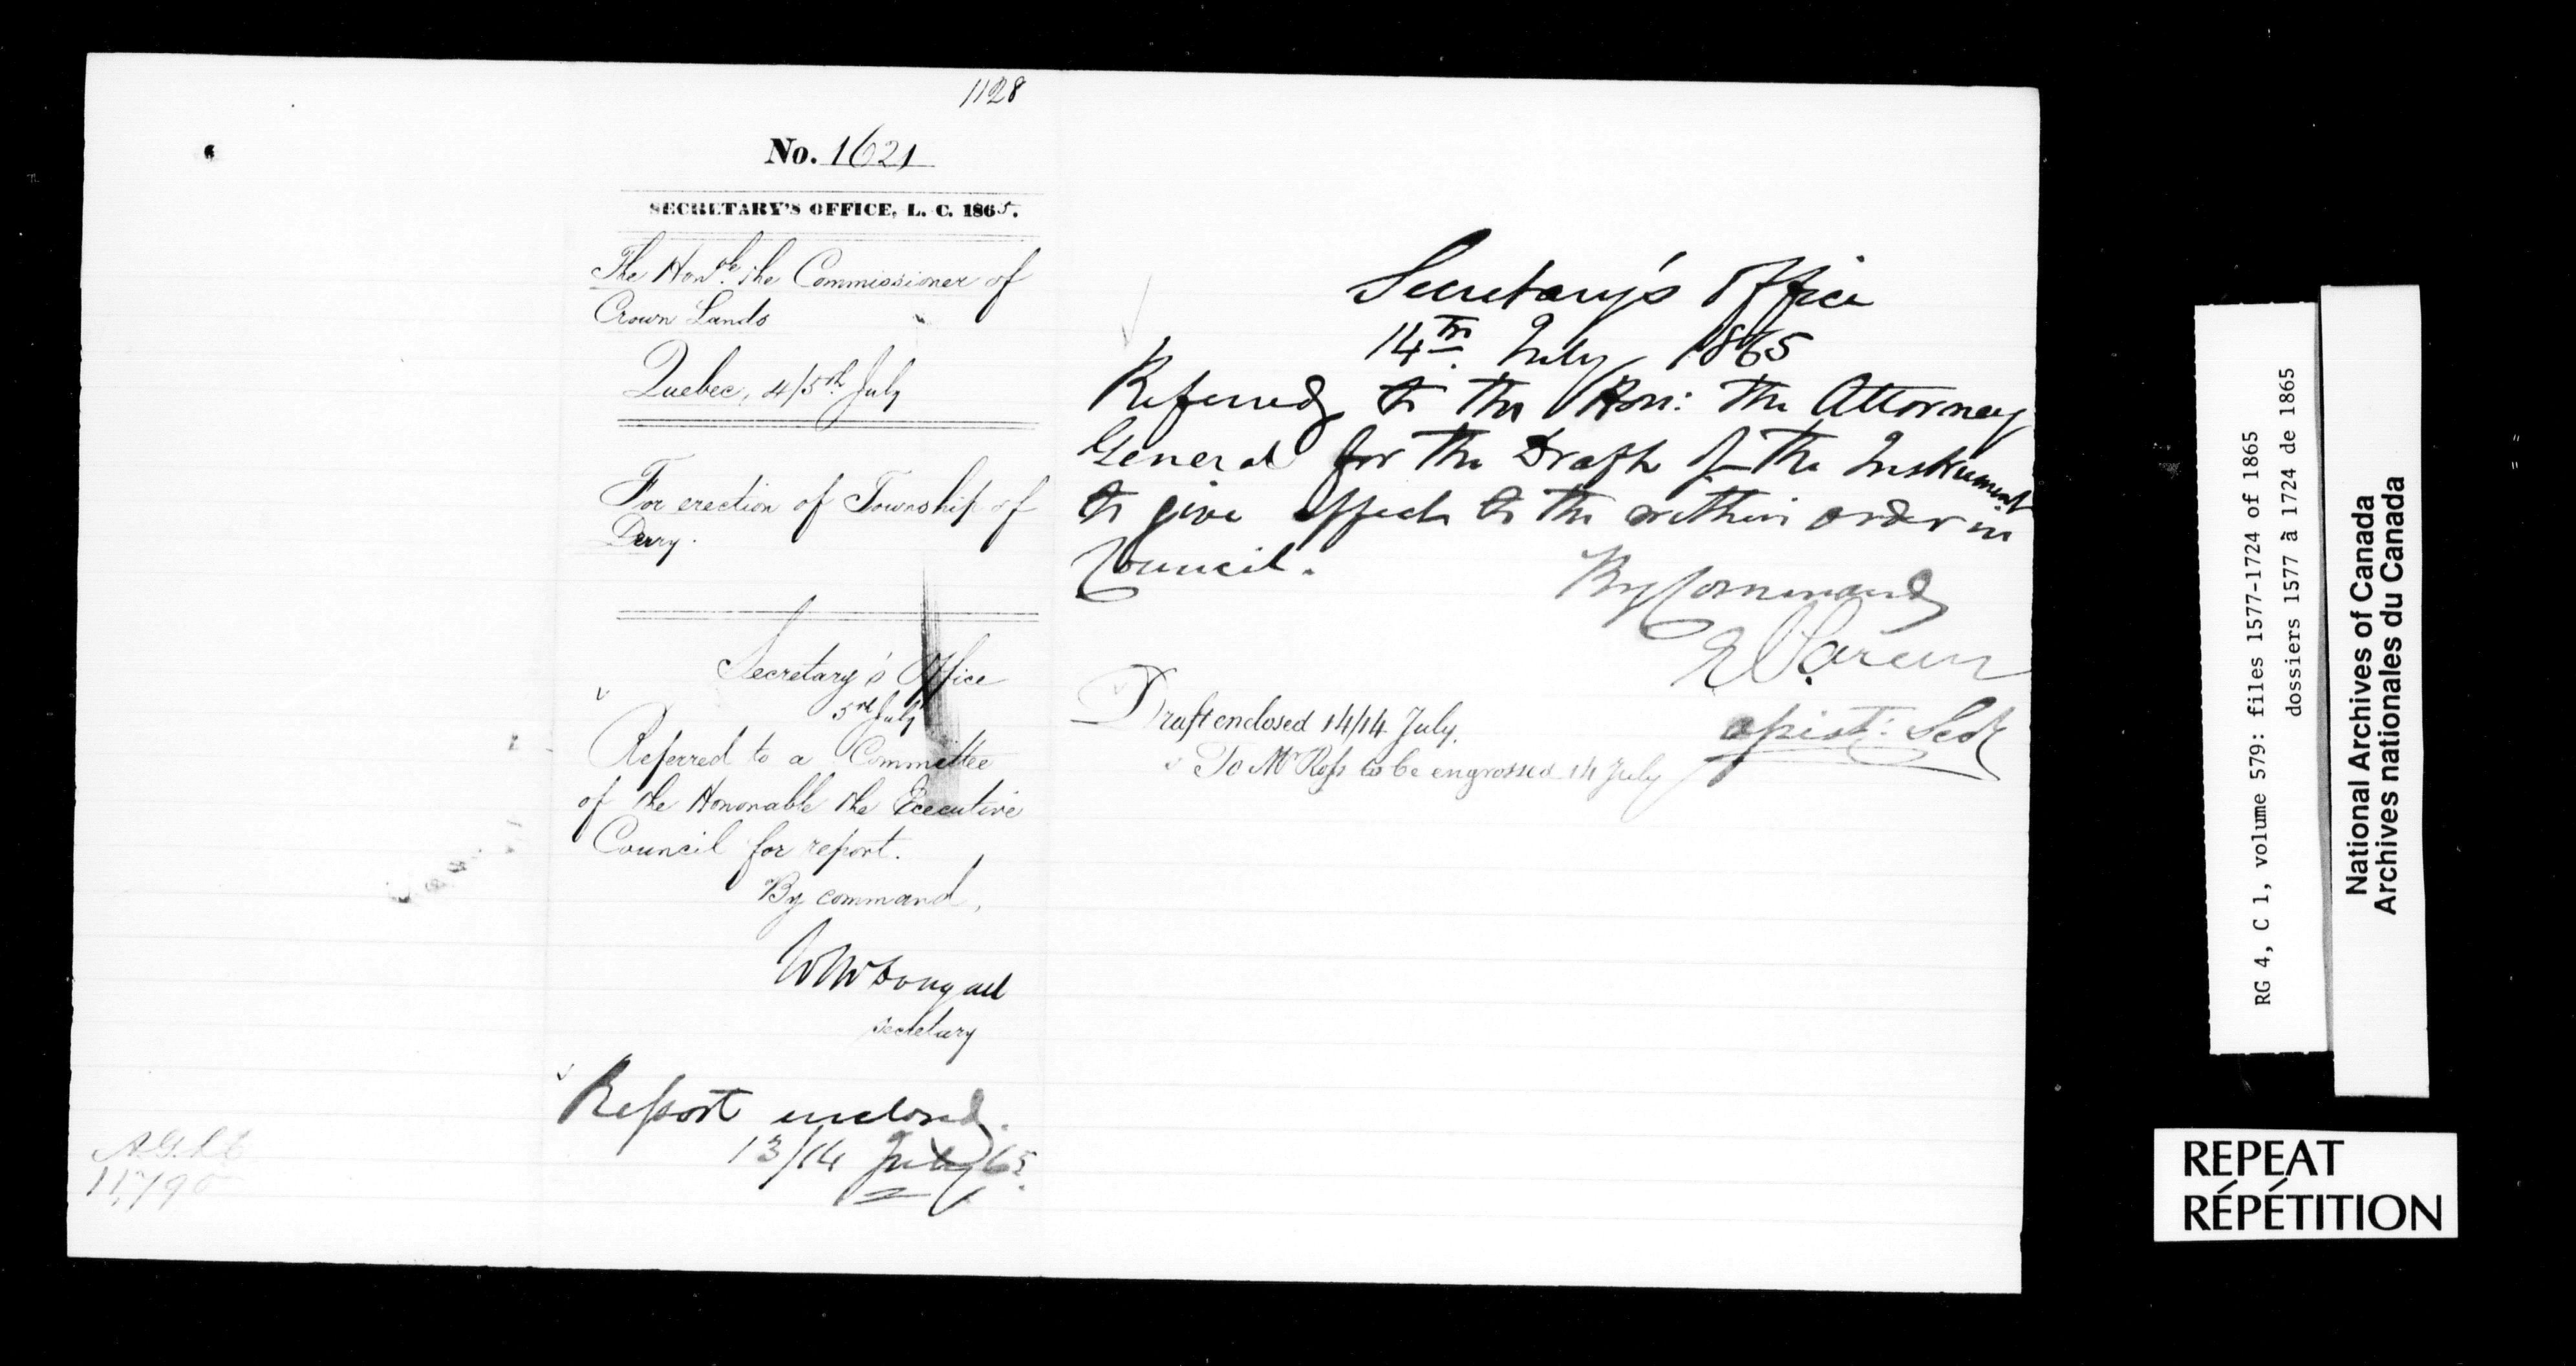 1128
No. 1621
SECRETARY'S OFFICE, L. C. 1865.
The Honble. the Commissioner of
Crown Lands
Quebec, 4/5th July
For erection of Township of
Derry.
Secretary's Office
5th July
Referred to a Committee
of the Honorable the Executive
Council for report.
By command,
WMcDougall
Secretary
Report enclosed.
13/14 July 65.
A.G.L.C
11790
Secretary's Office
14th. July 1865
Referred to the Hon: the Attorney
General for the Draft of the Instrument
to give effect to the within order in
Council.
By Command
E Parent
Assist: Secy
Draft enclosed 14/14 July.
To Mr Ross to be engrossed 14 July
RG 4, C 1, volume 579: files 1577-1724 of 1865
dossiers 1577 à 1724 de 1865
National Archives of Canada
Archives nationales du Canada
REPEAT
RÉPÉTITION